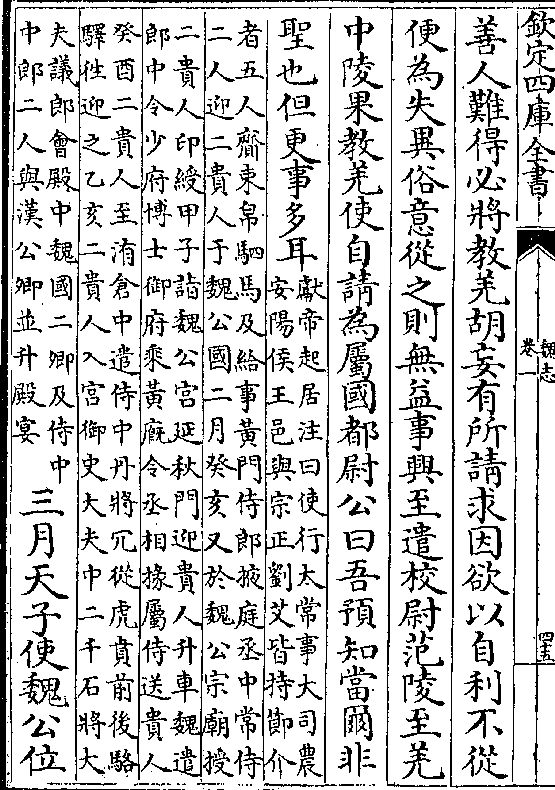 欽定四庫全書
魏志
卷一
四五
善人難得必將教羌胡妄有所請求因欲以自利不從
便為失異俗意從之則無益事興至遣校尉范陵至羌
中陵果教羌使自請為屬國都尉公曰吾預知當爾非
聖也但更事多耳
獻帝起居注曰使行太常事大司農
安陽侯王邑與宗正劉艾皆持節介
者五人齎束帛駟馬及給事黃門侍郎掖庭丞中常侍
二人迎二貴人于魏公國二月癸亥又於魏公宗廟授
二貴人印綬甲子詣魏公宮延秋門迎貴人升車魏遣
郎中令少府博士御府乘黃廐令丞相掾屬侍送貴人
癸酉二貴人至洧倉中遣侍中丹將冗從虎賁前後駱
驛往迎之乙亥二貴人入宮御史大夫中二千石將大
夫議郎會殿中魏國二卿及侍中
中郎二人與漢公卿並升殿宴
三月天子使魏公位